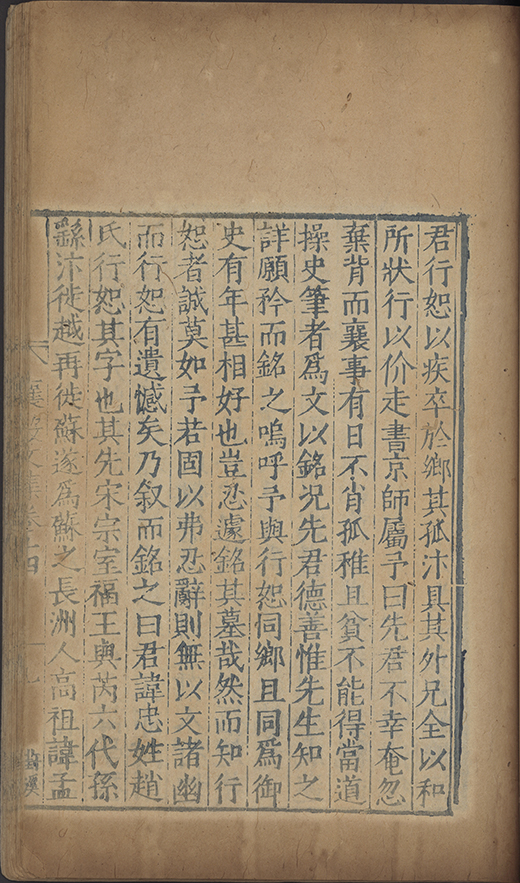 君行恕以疾卒於鄉其孤汴具其外兄全以和
所狀行以价走書京師屬予曰先君不幸奄忽
棄背而襄事有日不肖孤稚且貧不能得當道
操史筆者爲文以銘况先君德善惟先生知之
詳願矜而銘之嗚呼予與行恕同鄉且同爲御
史有年甚相好也豈忍遽銘其墓哉然而知行
恕者誠莫如予若固以弗忍辭則無以文諸幽
而行恕有遺憾矣乃叙而銘之曰君諱忠姓趙
氏行恕其字也其先宋宗室福王與芮六代孫
繇汴徙越再徙蘇遂爲蘇之長洲人高祖諱孟
文集卷十四